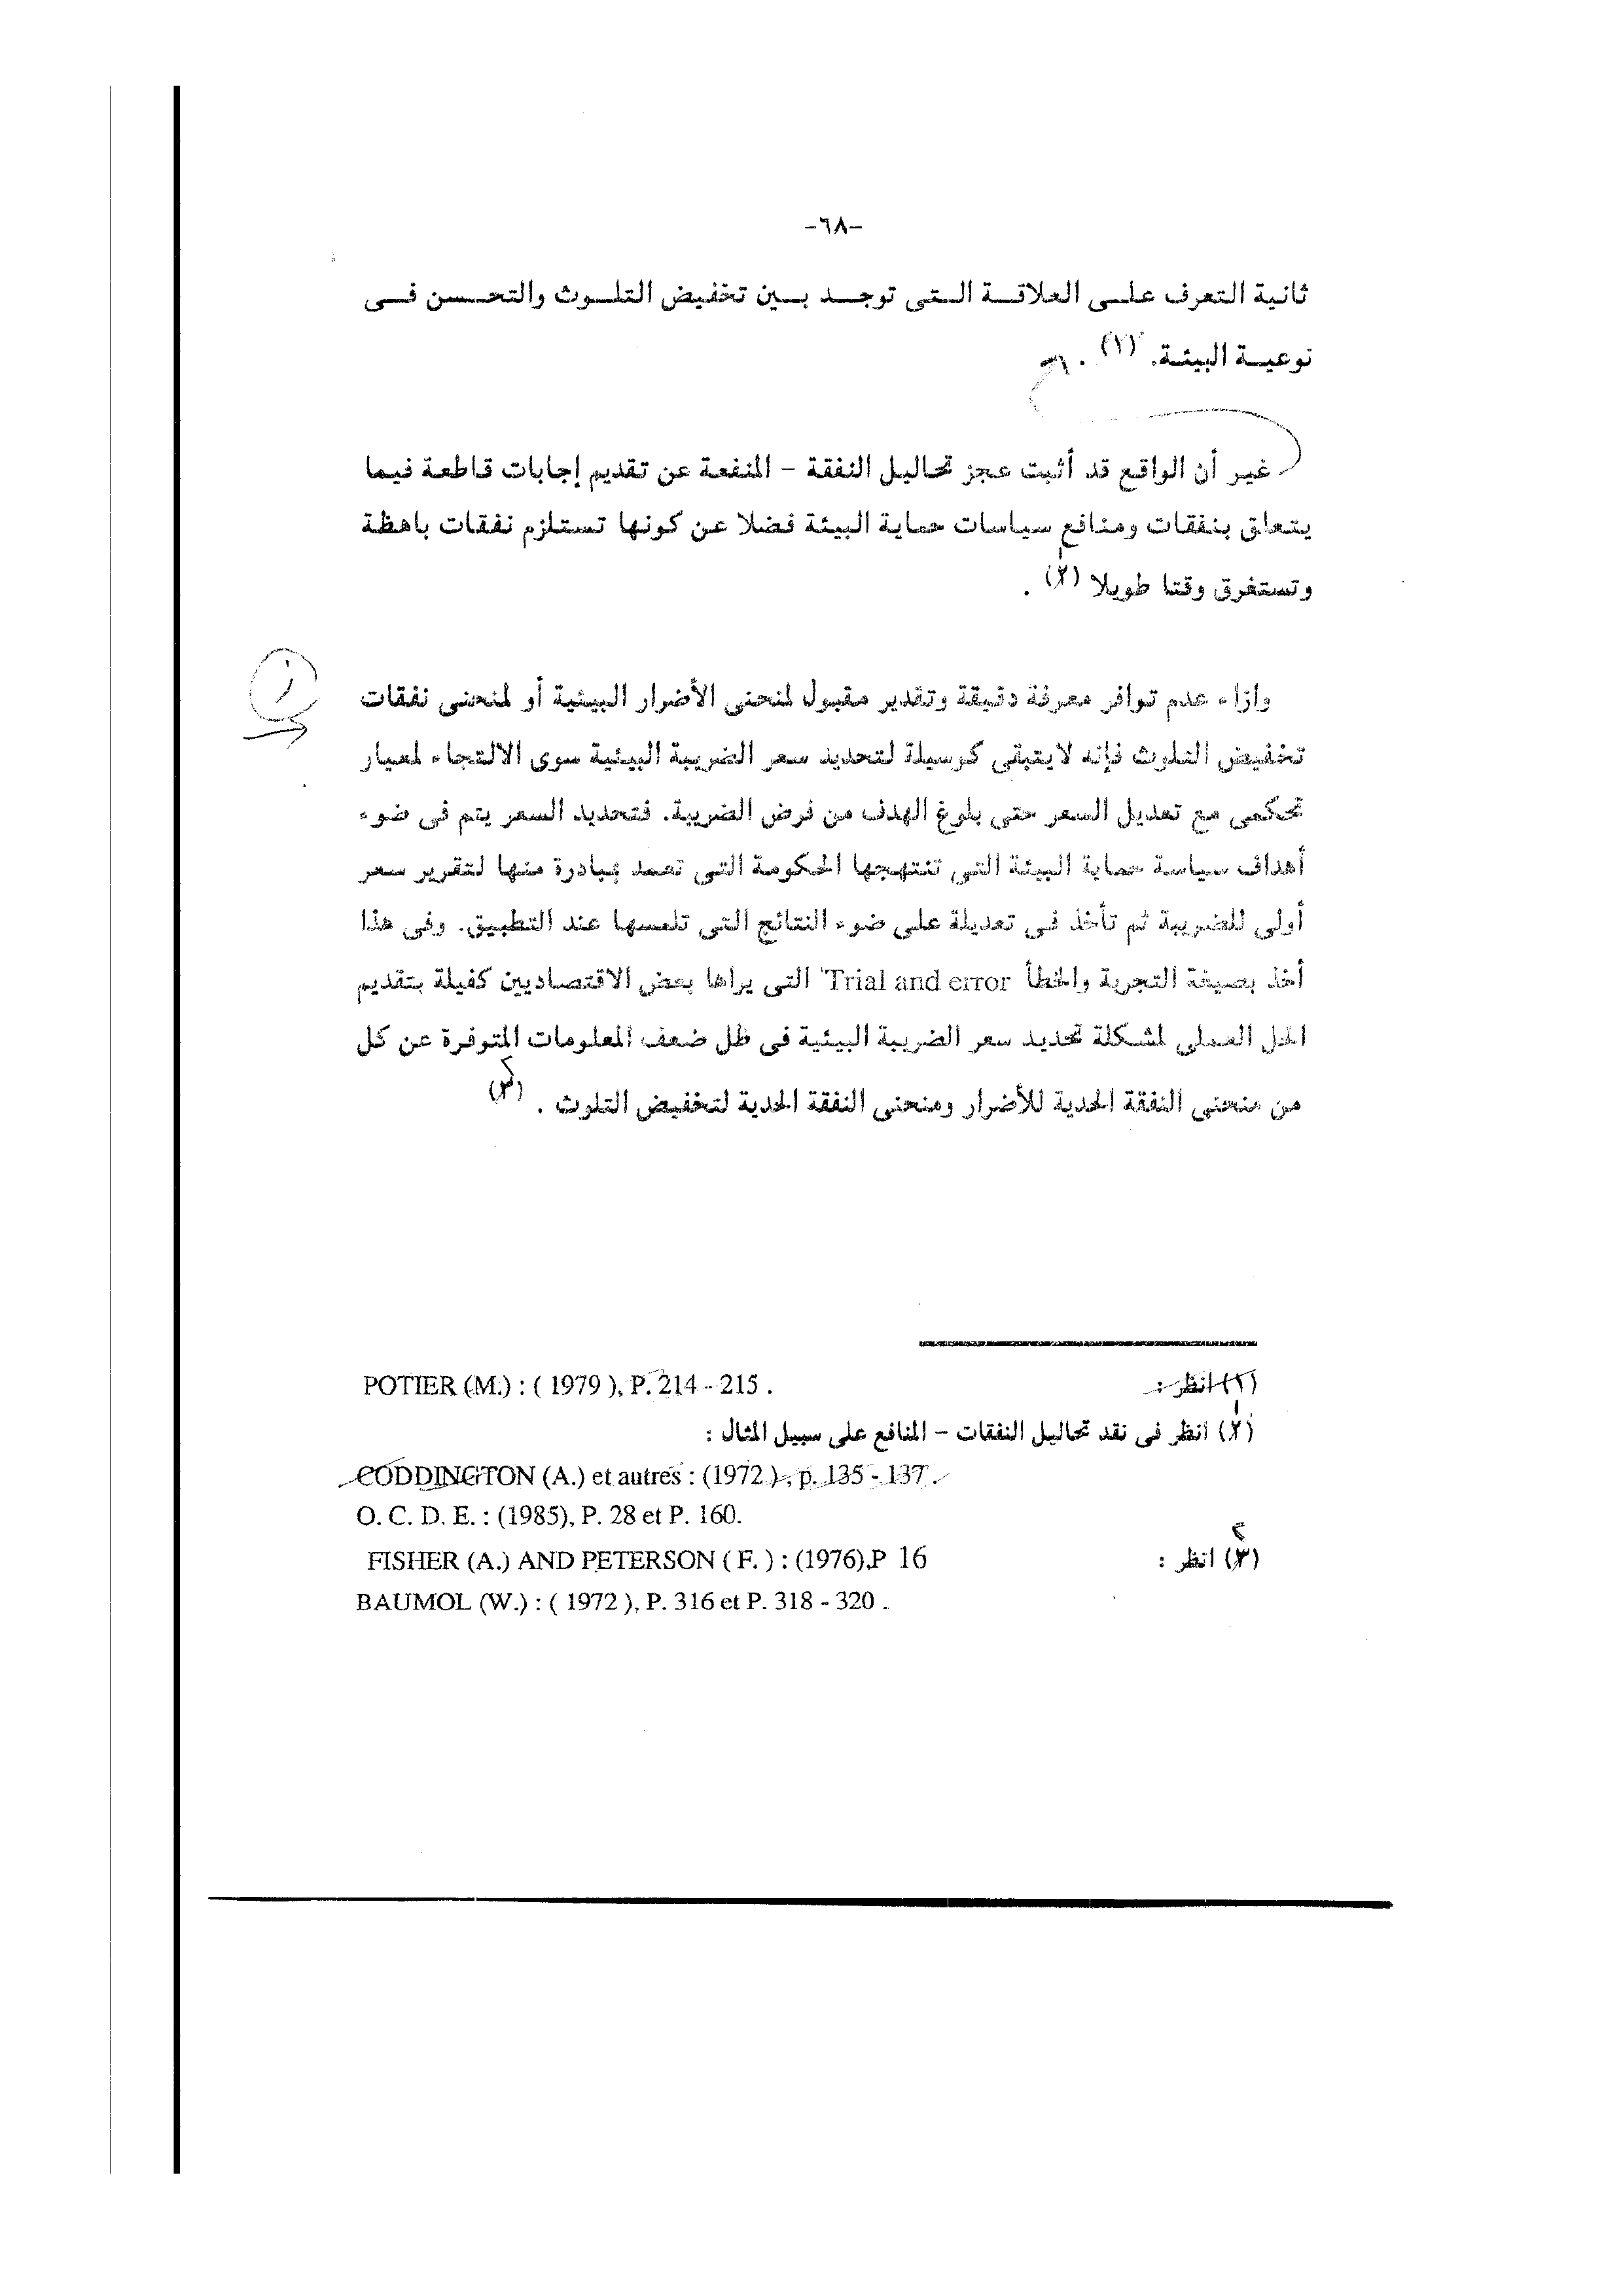 -٦٨-
ثانية التعرف على العلاقة التى توجد بين تخفيض التلوث والتحسن فى
نوعية البيئة. (١) .
غير أن الواقع قد أثبت عجز تحاليل النفقة - المنفعة عن تقديم إجابات قاطعة فيما
يتعلق بنفقات ومنافع سياسات حماية البيئة فضلا عن كونها تستلزم نفقات باهظة
وتستغرق وقتا طويلا (٢) .
وازاء عدم توافر معرفة دقيقة وتقدير مقبول لمنحنى الأضرار البيئية أو لمنحنى نفقات
تخفيض التلوث فإنه لايتبقى كوسيلة لتحديد سعر الضريبة البيئية سوى الالتجاء لمعيار
تحكمى مع تعديل السعر حتى بلوغ الهدف من فرض الضريبة. فتحديد السعر يتم فى ضوء
أهداف سياسة حماية البيئة التى تنتهجها الحكومة التى تعمد بمبادرة منها لتقرير سعر
أولى للضريبة ثم تأخذ فى تعديلة على ضوء النتائج التى تلمسها عند التطبيق. وفى هذا
أخذ بصيغة التجربة والخطأ Trial and error' التى يراها بعض الاقتصاديين كفيلة بتقديم
الحل العملى لمشكلة تحديد سعر الضريبة البيئية فى ظل ضعف المعلومات المتوفرة عن كل
من منحنى النفقة الحدية للأضرار ومنحنى النفقة الحدية لتخفيض التلوث . (٣)
(١) انظر : POTIER (M.) : ( 1979 ), P. 214 - 215 .
(٢) انظر فى نقد تحاليل النفقات - المنافع على سبيل المثال :
CODDINGTON (A.) et autres : (1972 ) , p. 135 - 137 .
O. C. D. E. : (1985), P. 28 et P. 160.
(٣) انظر : FISHER (A.) AND PETERSON ( F. ) : (1976),P 16
BAUMOL (W.) : ( 1972 ), P. 316 et P. 318 - 320 .